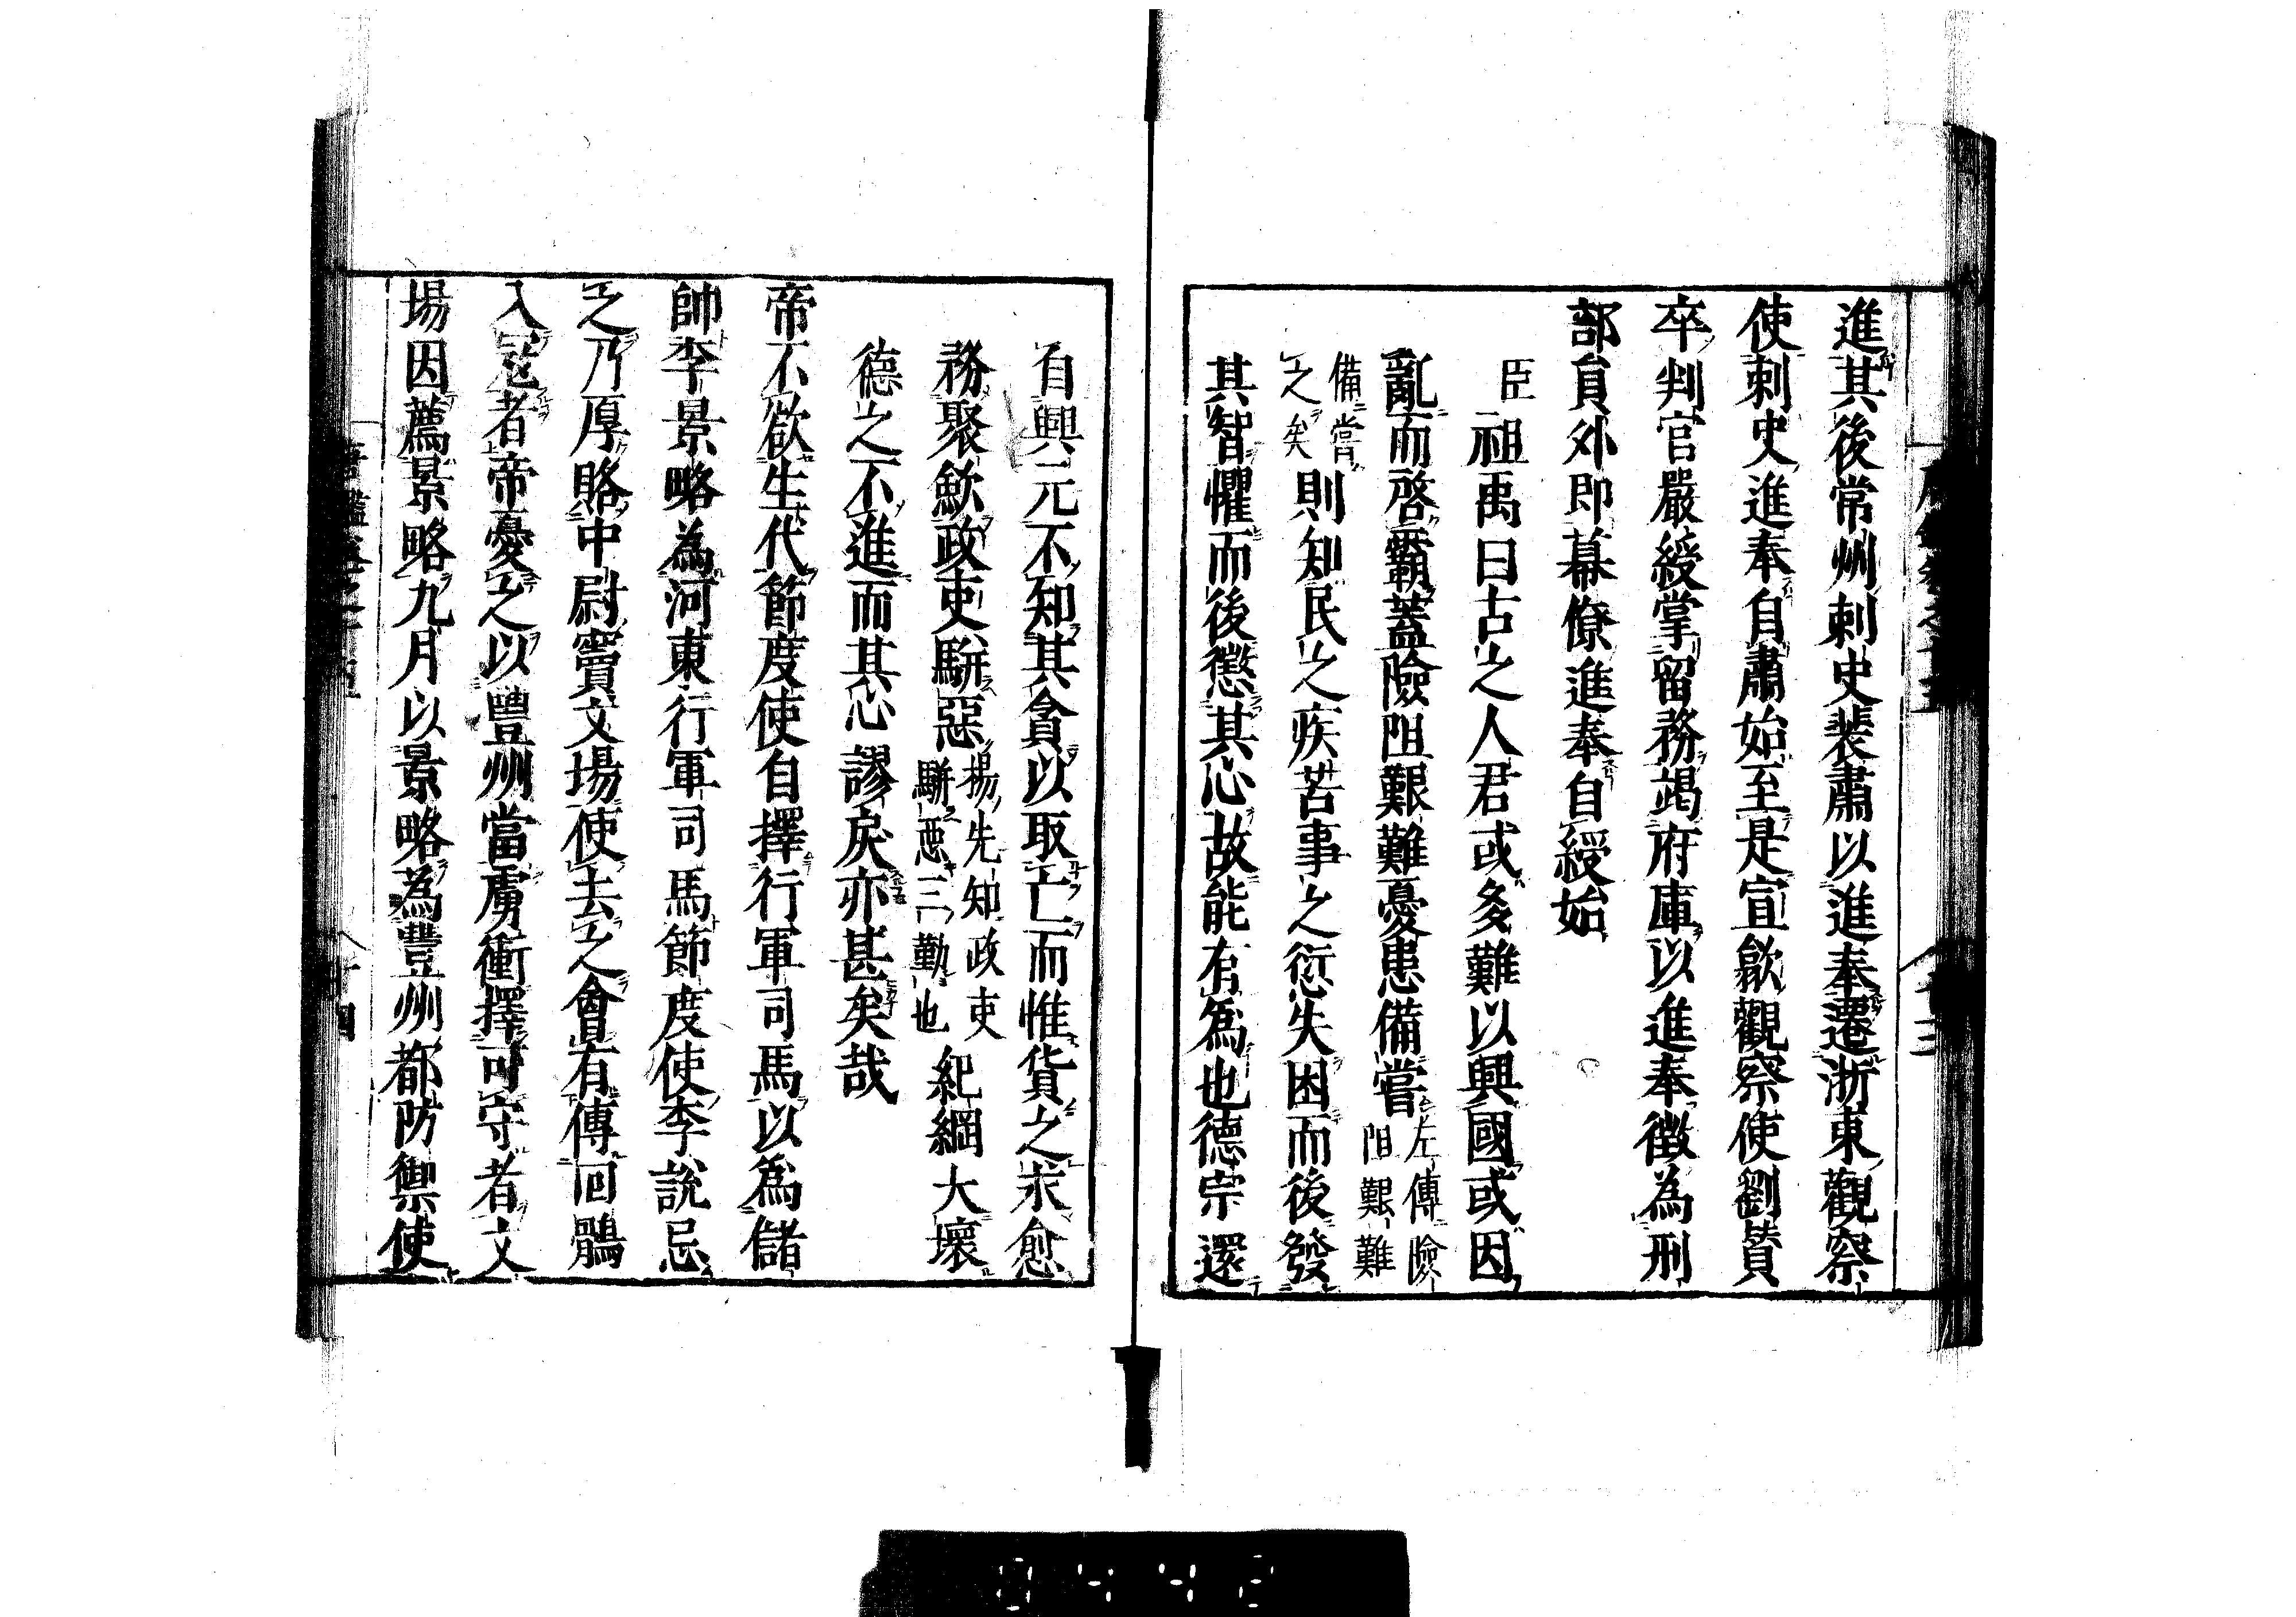 進其後常州刺史裴肅以進奉遷浙東觀察
使刺史進奉自肅始至是宣歙觀察使劉贊
卒判官嚴綬掌留務竭府庫以進奉徵為刑
部員外郎幕僚進奉自綬始
臣祖禹曰古之人君或多難以興國或因
亂而啓霸蓋險阻艱難憂患備嘗左傳險阻艱難
備嘗之矣則知民之疾苦事之衍失困而後發
其智懼而後懲其心故能有為也德宗還
自興元不知其貪以取亡而惟貨之求愈
務聚歛政吏駢惡揚先知政吏駢惡三勤也紀綱大壞
德之不進而其心謬戾亦甚矣哉
帝不欲生代節度使自擇行軍司馬以為儲
帥李景略為河東行軍司馬節度使李說忌
之乃厚賂中尉竇文場使去之會有傳回鶻
入寇者帝憂之以豐州當虜衝擇可守者文
場因薦景略九月以景略為豐州都防禦使